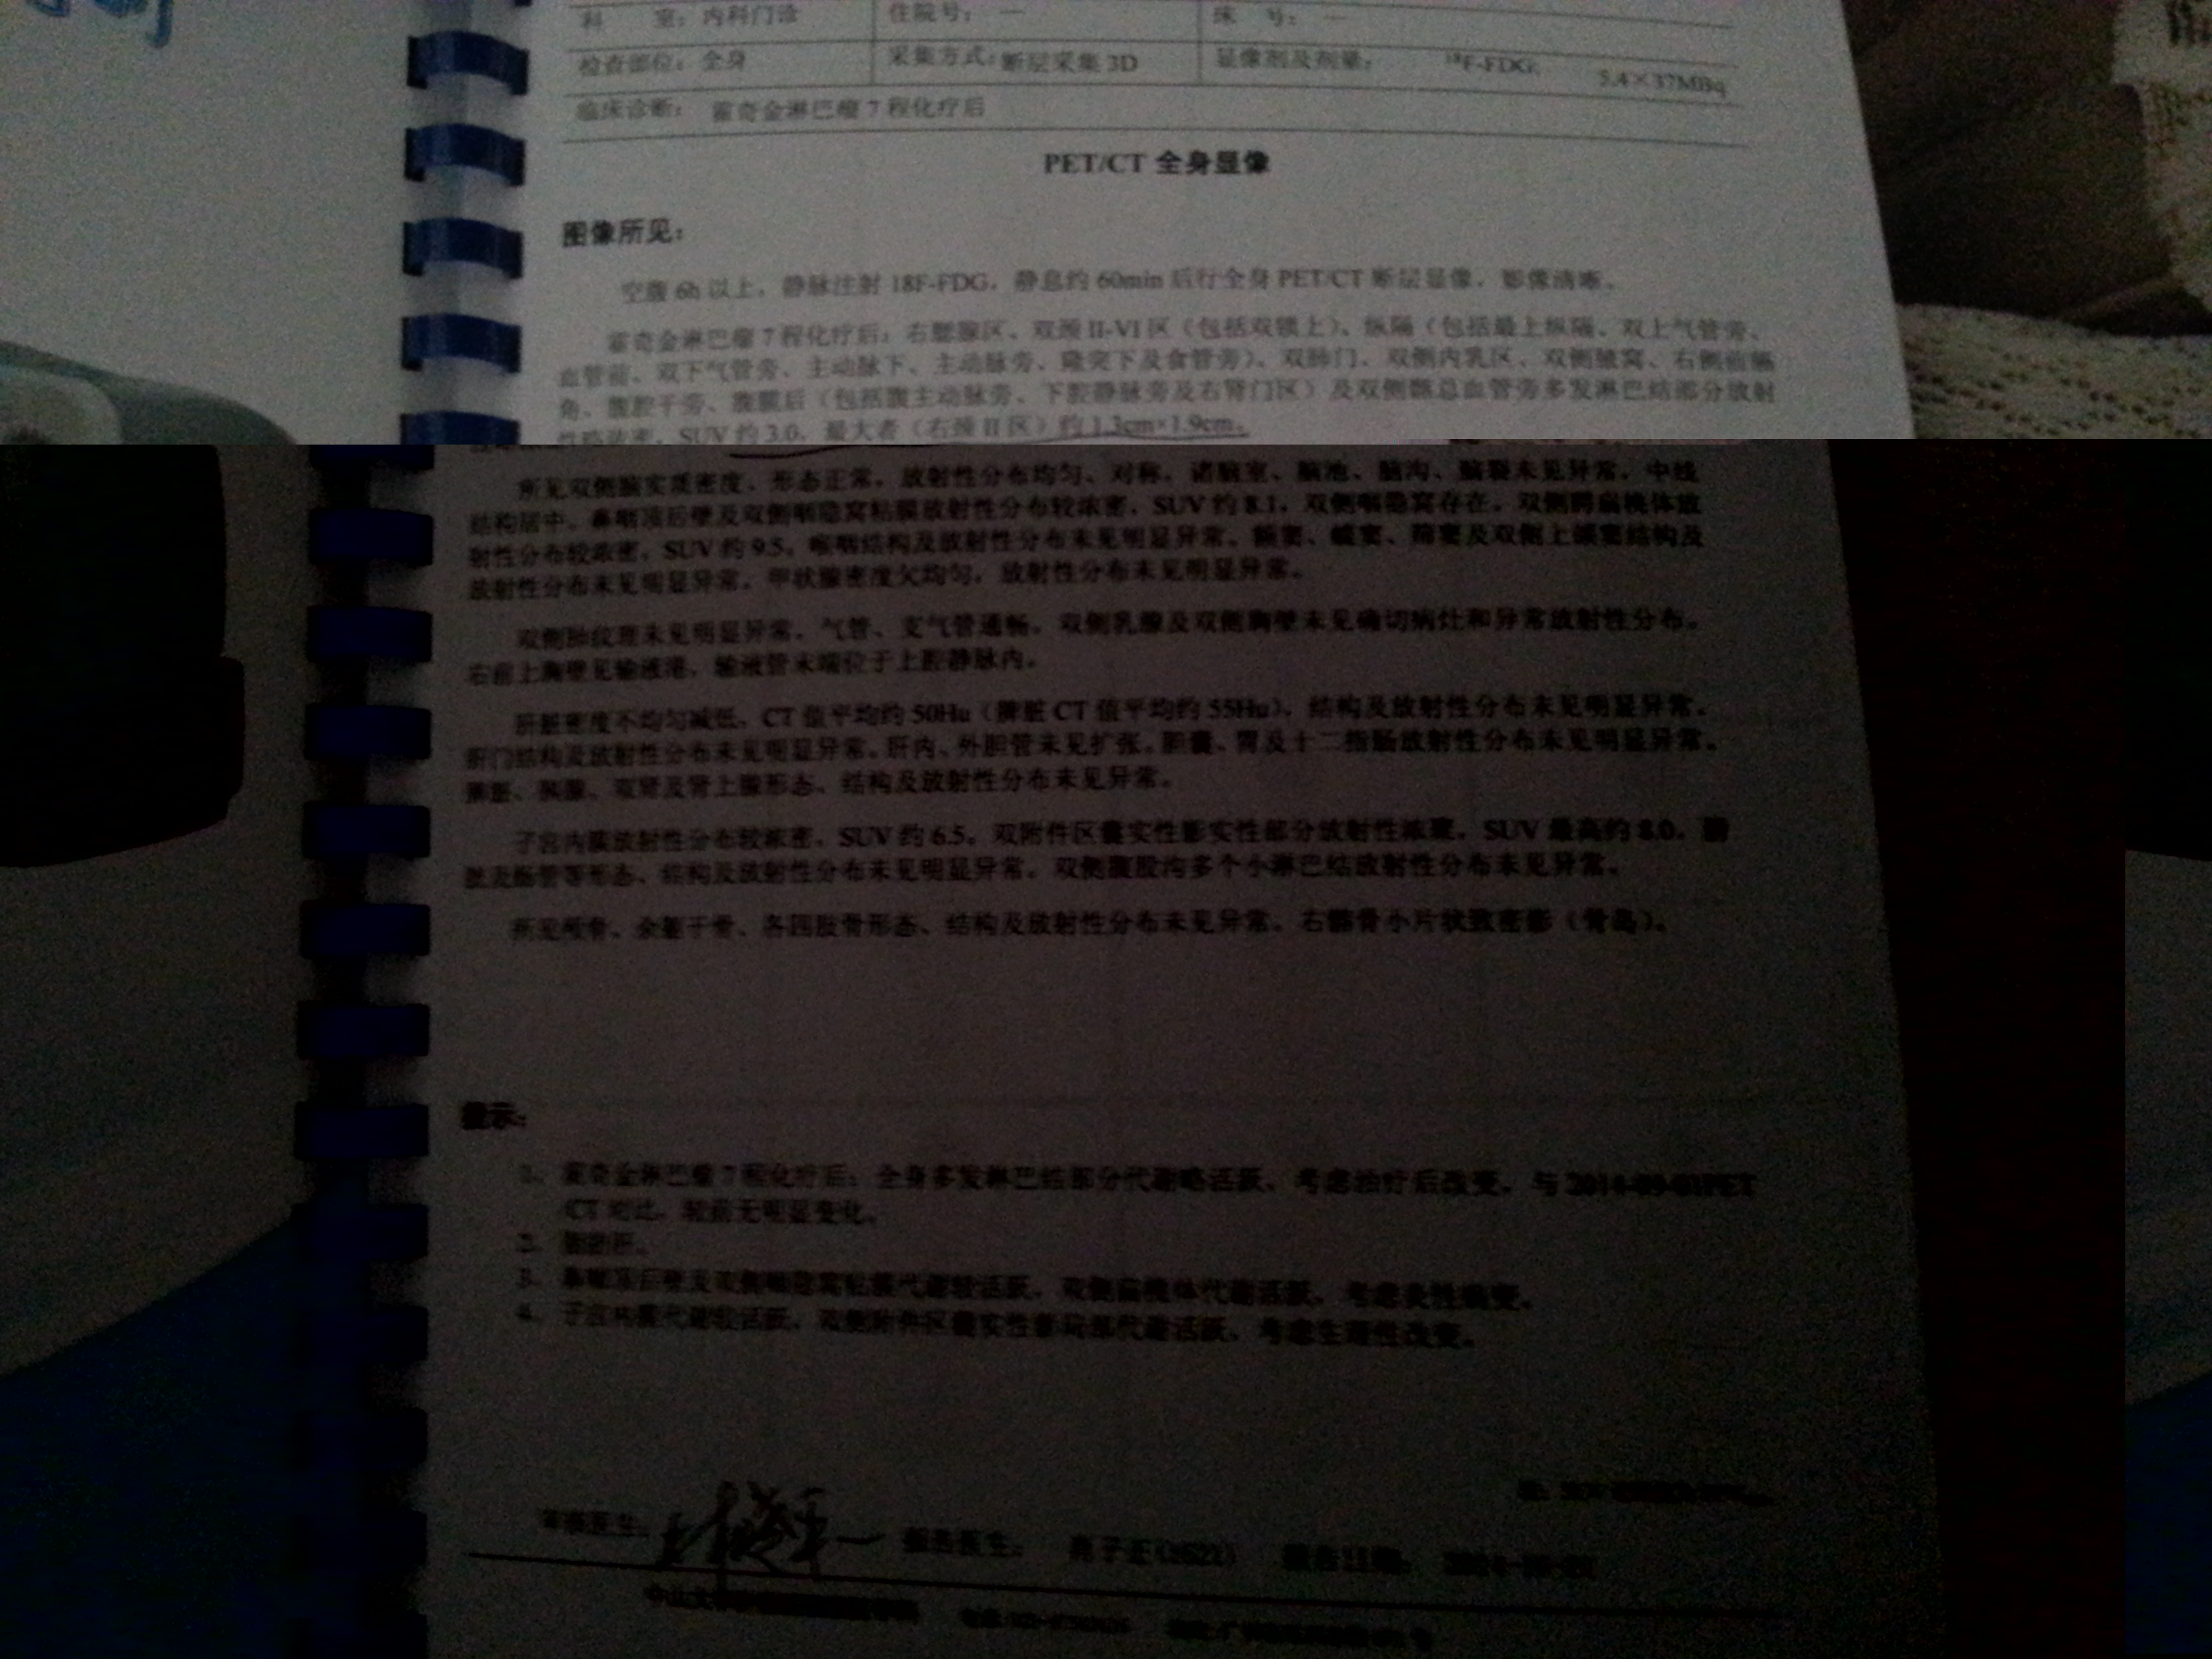 科 室：内科门诊 住院号：— 床 号：—
检查部位：全身 采集方式：断层采集 3D 显像剂及剂量： ¹⁸F-FDG: 5.4×37MBq
临床诊断： 霍奇金淋巴瘤 7 程化疗后
PET/CT 全身显像
图像所见：
空腹 6h 以上，静脉注射 18F-FDG，静息约 60min 后行全身 PET/CT 断层显像，影像清晰。
霍奇金淋巴瘤 7 程化疗后：右腮腺区、双颈 II-VI 区（包括双锁上）、纵隔（包括最上纵隔、双上气管旁、
血管前、双下气管旁、主动脉下、主动脉旁、隆突下及食管旁）、双肺门、双侧内乳区、双侧腋窝、右侧前膈
角、腹腔干旁、腹膜后（包括腹主动脉旁、下腔静脉旁及右肾门区）及双侧髂总血管旁多发淋巴结部分放射
性略浓密，SUV 约 3.0，最大者（右颈 II 区）约 1.3cm×1.9cm。
所见双侧脑实质密度、形态正常，放射性分布均匀、对称，诸脑室、脑池、脑沟、脑裂未见异常，中线
结构居中。鼻咽顶后壁及双侧咽隐窝粘膜放射性分布较浓密，SUV 约 8.1，双侧咽隐窝存在。双侧腭扁桃体放
射性分布较浓密，SUV 约 9.5。喉咽结构及放射性分布未见明显异常。额窦、蝶窦、筛窦及双侧上颌窦结构及
放射性分布未见明显异常。甲状腺密度欠均匀，放射性分布未见明显异常。
双侧肺纹理未见明显异常。气管、支气管通畅。双侧乳腺及双侧胸壁未见确切病灶和异常放射性分布。
右前上胸壁见输液港，输液管末端位于上腔静脉内。
肝脏密度不均匀减低，CT 值平均约 50Hu（脾脏 CT 值平均约 55Hu），结构及放射性分布未见明显异常。
肝门结构及放射性分布未见明显异常。肝内、外胆管未见扩张。胆囊、胃及十二指肠放射性分布未见明显异常。
脾脏、胰腺、双肾及肾上腺形态、结构及放射性分布未见异常。
子宫内膜放射性分布较浓密，SUV 约 6.5。双附件区囊实性影实性部分放射性浓聚，SUV 最高约 8.0。膀
胱及肠管等形态、结构及放射性分布未见明显异常。双侧腹股沟多个小淋巴结放射性分布未见异常。
所见颅骨、余躯干骨、各四肢骨形态、结构及放射性分布未见异常。右髂骨小片状致密影（骨岛）。
提示：
1、 霍奇金淋巴瘤 7 程化疗后：全身多发淋巴结部分代谢略活跃，考虑治疗后改变，与 PET
CT 对比，较前无明显变化。
2、 脂肪肝。
3、 鼻咽顶后壁及双侧咽隐窝粘膜代谢较活跃，双侧扁桃体代谢活跃，考虑炎性病变。
4、 子宫内膜代谢较活跃，双侧附件区囊实性影局部代谢活跃，考虑生理性改变。
审核医生： 报告医生： 报告日期：